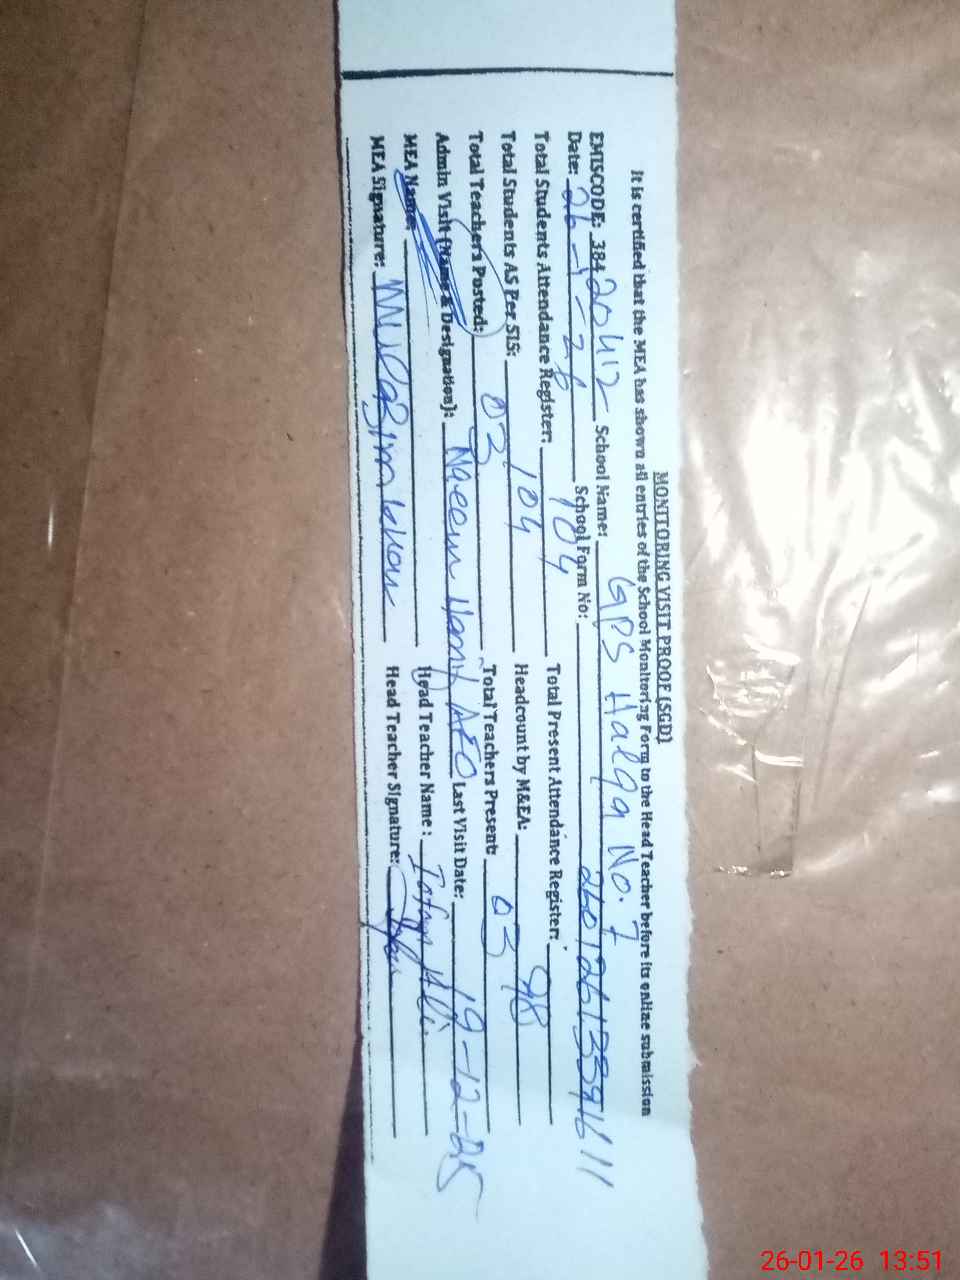 MONITORING VISIT PROOF (SGD)
It is certified that the MEA has shown all entries of the School Monitoring Form to the Head Teacher before its online submission
EMISCODE: 38420412 School Name: GPS Halqa No. 7
Date: 26-1-26 School Form No: 260126133911
Total Students Attendance Register: 104 Total Present Attendance Register:
Total Students AS Per SIS: 104 Headcount by M&EA: 98
Total Teachers Posted: 03 Total Teachers Present: 03
Admin Visit (Name & Designation): Naeem Hanif AEO Last Visit Date: 19-12-25
MEA Name: Head Teacher Name: Ali
MEA Signature: Head Teacher Signature:
26-01-26 13:51